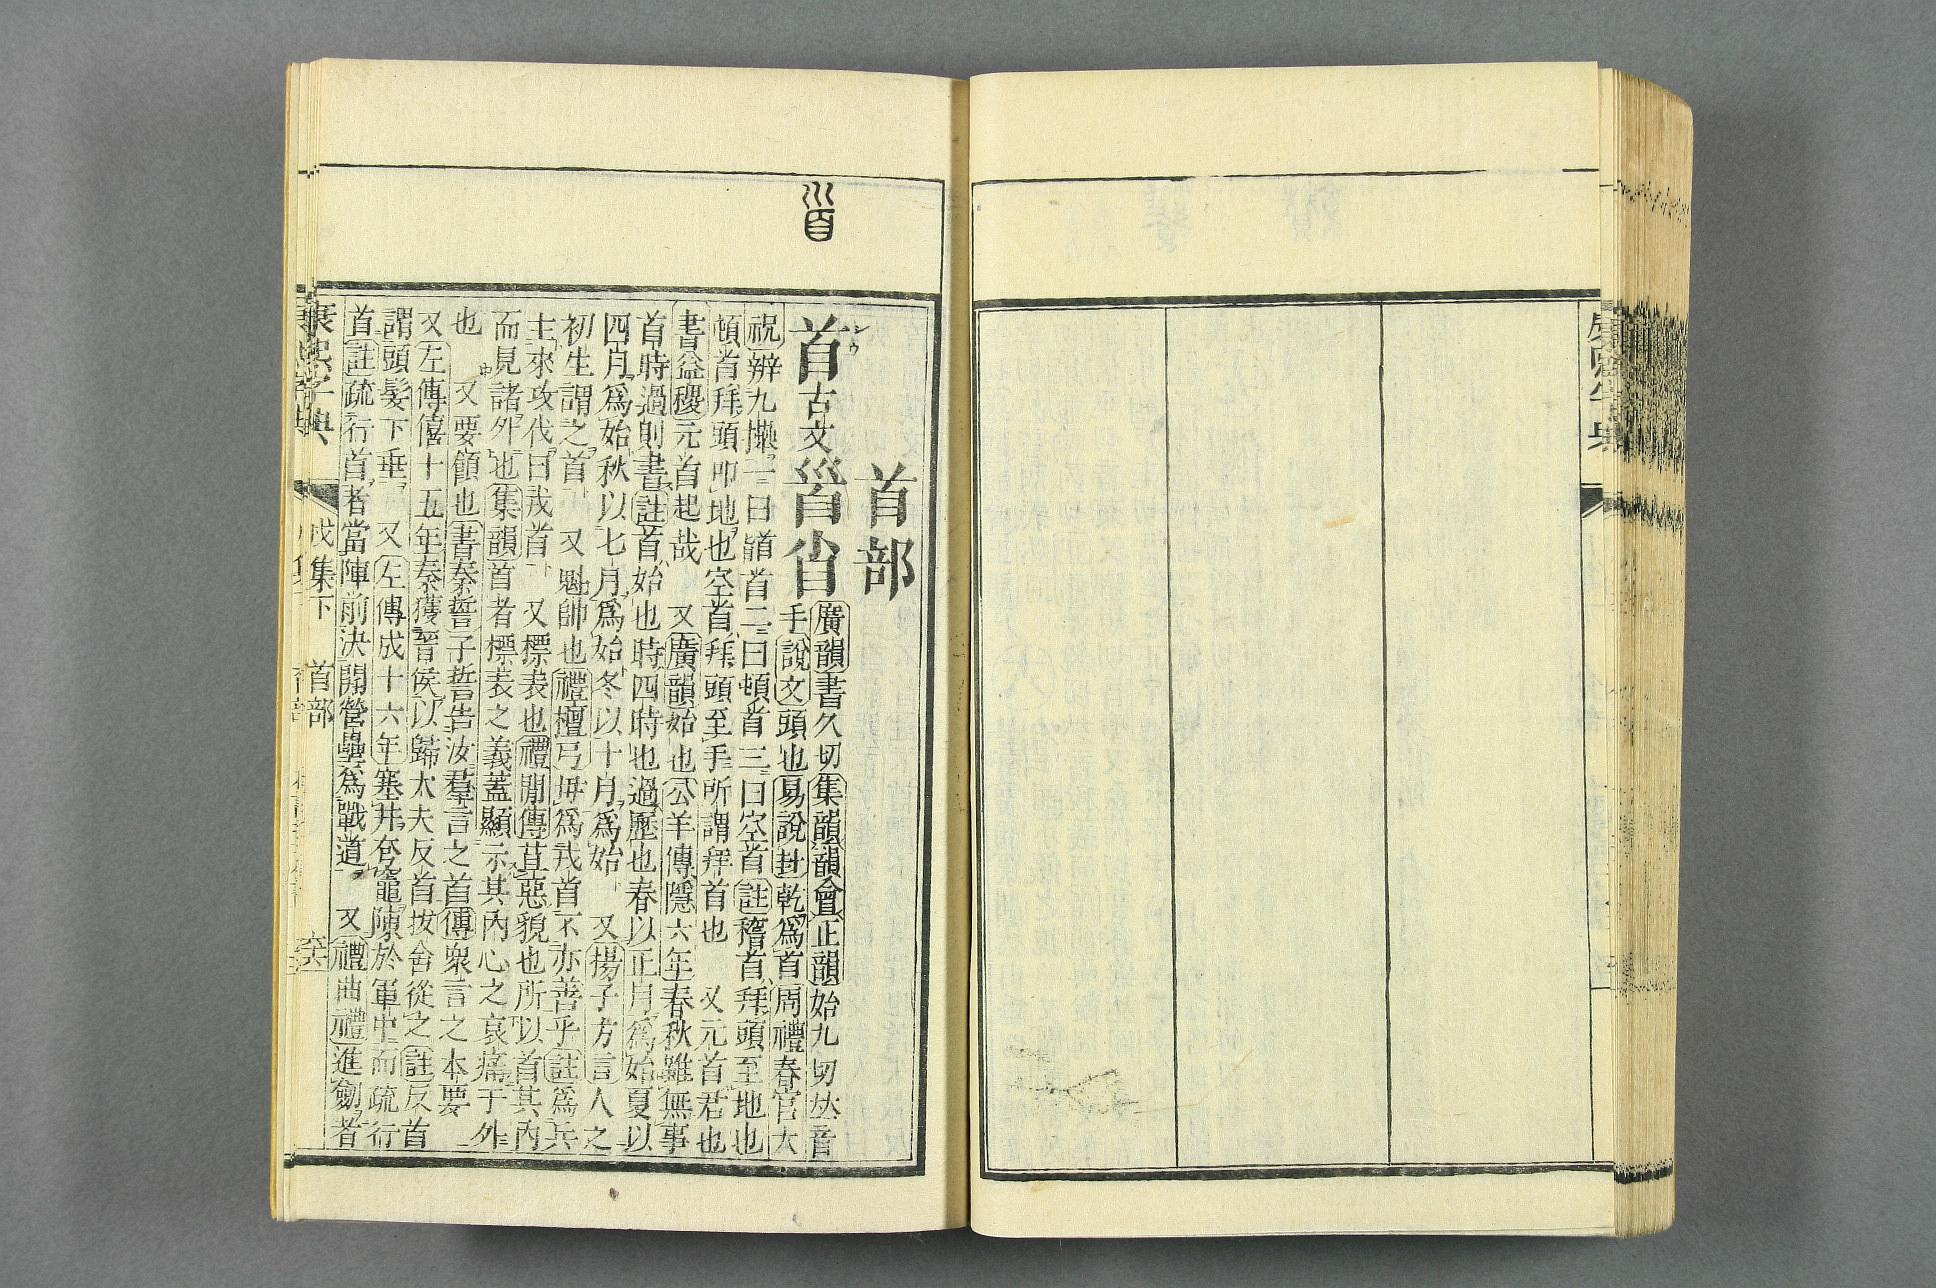 𩠐
首部
首シウ古文𩠐㫖
廣韻書久切集韻韻會正韻始九切𠀤音
手說文頭也易說卦乾爲首周禮春官大
祝辨九𢷎一曰䭫首二曰頓首三曰空首註稽首拜頭至地也
頓首拜頭叩地也空首拜頭至手所謂拜首也 又元首君也
書益稷元首起哉 又廣韻始也公羊傳隱六年春秋雖無事
首時過則書註首始也時四時也過歷也春以正月爲始夏以
四月爲始秋以七月爲始冬以十月爲始 又揚子方言人之
初生謂之首 又魁帥也禮檀弓毋爲戎首不亦善乎註爲兵
主來攻伐曰戎首 又標表也禮閒傳苴惡貌也所以首其內
而見諸外也集韻首者標表之義蓋顯示其內心之哀痛于外
也 又要領也書秦誓予誓告汝羣言之首傳衆言之本要
又左傳僖十五年秦獲晉侯以歸大夫反首拔舍從之註反首
謂頭髮下垂 又左傳成十六年塞井夷竈陳於軍中而疏行
首註疏行首者當陣前決開營壘爲戰道 又禮曲禮進劒者
康熙字典 戌集下 首部 六十六
康熙字典